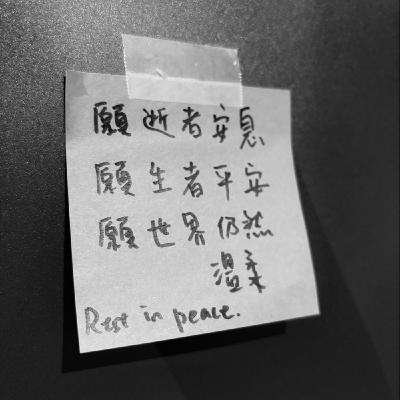 願逝者安息
願生者平安
願世界仍然
溫柔
Rest in peace.